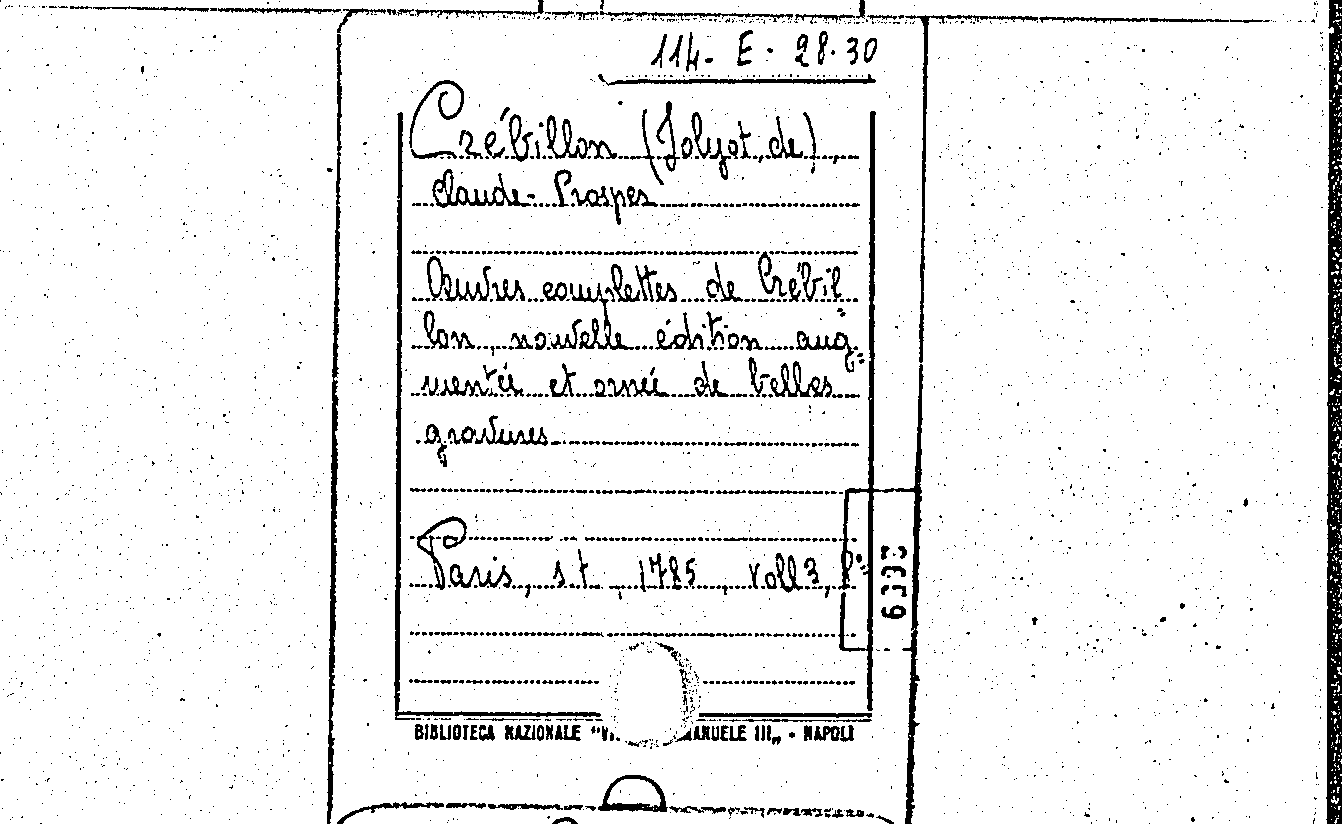 114- E. 28.30
Crébillon (Jolyot de),
Claude-Prosper
Œuvres complettes de Crébil=
lon, nouvelle édition aug=
mentée et ornée de belles
gravures
Paris, s.t, 1785, voll 3,
BIBLIOTECA NAZIONALE "VI MANUELE III„ - NAPOLI